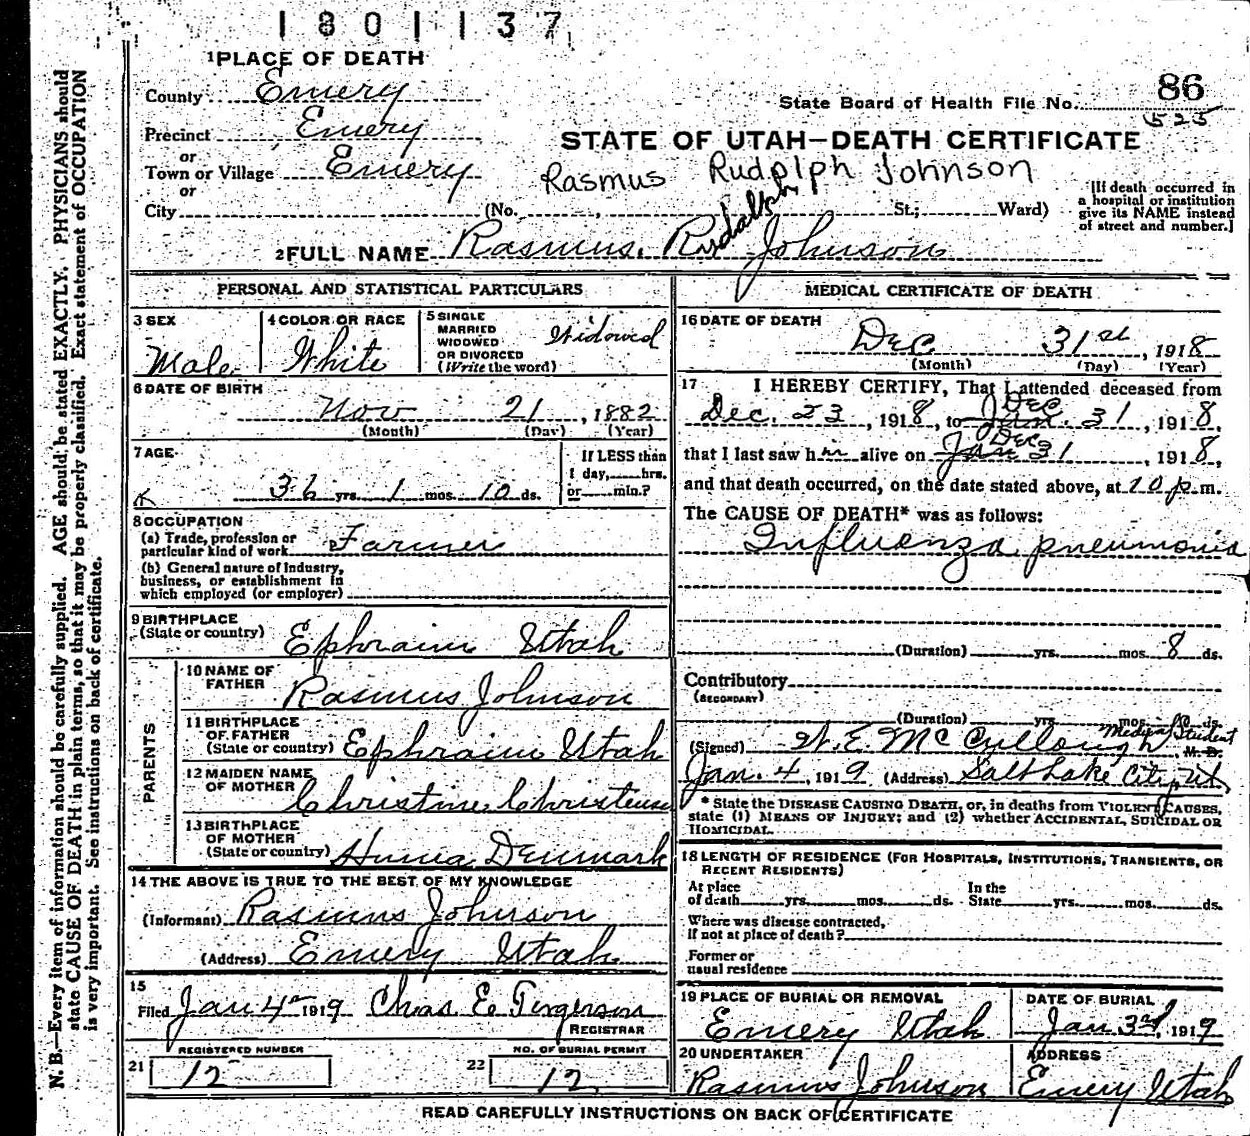 1801137
1 PLACE OF DEATH
County Emery
State Board of Health File No. 86
525
Precinct Emery
or
STATE OF UTAH—DEATH CERTIFICATE
Town or Village Emery
or
Rasmus Rudolph Johnson
City (No. , St.; Ward)
[If death occurred in
a hospital or institution
give its NAME instead
of street and number.]
2 FULL NAME Rasmus Rudolph Johnson
PERSONAL AND STATISTICAL PARTICULARS
3 SEX
Male
4 COLOR OR RACE
White
5 SINGLE
MARRIED
WIDOWED
OR DIVORCED
(Write the word)
Widowed
6 DATE OF BIRTH
Nov 21, 1882
(Month) (Day) (Year)
7 AGE
36 yrs. 1 mos. 10 ds.
If LESS than
1 day, hrs.
or min.?
8 OCCUPATION
(a) Trade, profession or
particular kind of work Farmer
(b) General nature of industry,
business, or establishment in
which employed (or employer)
9 BIRTHPLACE
(State or country) Ephraim Utah
PARENTS
10 NAME OF
FATHER Rasmus Johnson
11 BIRTHPLACE
OF FATHER
(State or country) Ephraim Utah
12 MAIDEN NAME
OF MOTHER Christine Christensen
13 BIRTHPLACE
OF MOTHER
(State or country) Denmark
14 THE ABOVE IS TRUE TO THE BEST OF MY KNOWLEDGE
(Informant) Rasmus Johnson
(Address) Emery Utah
15
Filed Jan 4 1919 Chas E.
REGISTRAR
21 REGISTERED NUMBER
12
22 NO. OF BURIAL PERMIT
12
MEDICAL CERTIFICATE OF DEATH
16 DATE OF DEATH
Dec 31st, 1918
(Month) (Day) (Year)
17 I HEREBY CERTIFY, That I attended deceased from
Dec
Dec. 23, 1918, to Jan. 31, 1918,
Dec
that I last saw him alive on Jan 31, 1918,
and that death occurred, on the date stated above, at 10 p.m.
The CAUSE OF DEATH* was as follows:
Influenza pneumonia
(Duration) yrs. mos. 8 ds.
Contributory
(SECONDARY)
(Duration) yrs. mos. ds.
(Signed) W. E. McCullough Medical Student M. D.
Jan. 4, 1919 (Address) Salt Lake City, Ut
* State the DISEASE CAUSING DEATH, or, in deaths from VIOLENT CAUSES,
state (1) MEANS OF INJURY; and (2) whether ACCIDENTAL, SUICIDAL OR
HOMICIDAL.
18 LENGTH OF RESIDENCE (FOR HOSPITALS, INSTITUTIONS, TRANSIENTS, OR
RECENT RESIDENTS)
At place
of death yrs. mos. ds.
In the
State yrs. mos. ds.
Where was disease contracted,
If not at place of death?
Former or
usual residence
19 PLACE OF BURIAL OR REMOVAL
Emery Utah
DATE OF BURIAL
Jan 3rd, 1919
20 UNDERTAKER
Rasmus Johnson
ADDRESS
Emery Utah
READ CAREFULLY INSTRUCTIONS ON BACK OF CERTIFICATE
N. B.—Every item of information should be carefully supplied. AGE should be stated EXACTLY. PHYSICIANS should
state CAUSE OF DEATH in plain terms, so that it may be properly classified. Exact statement of OCCUPATION
is very important. See instructions on back of certificate.